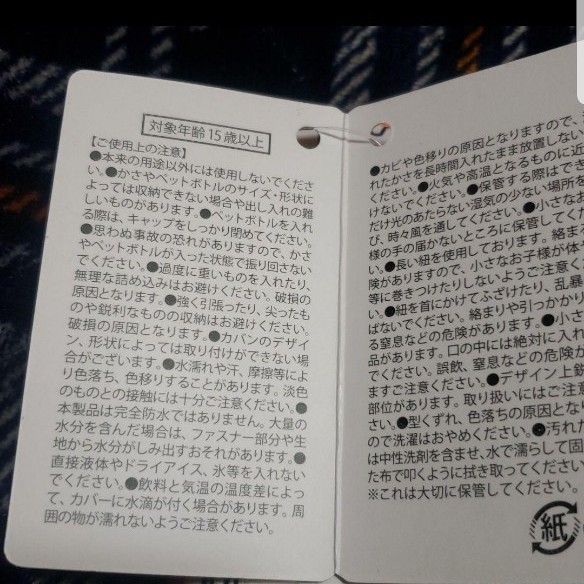 対象年齢15歳以上
【ご使用上の注意】
●本来の用途以外には使用しないでくださ
い。●かさやペットボトルのサイズ・形状に
よっては収納できない場合や出し入れの難
しいものがあります。●ペットボトルを入れ
る際は、キャップをしっかり閉めてください。
●思わぬ事故の恐れがありますので、かさ
やペットボトルが入った状態で振り回さない
でください。●過度に重いものを入れたり、
無理な詰め込みはお避けください。破損の
原因となります。●強く引張ったり、尖ったも
のや鋭利なものの収納はお避けください。
破損の原因となります。●カバンのデザイ
ン、形状によっては取り付けができない場
合がございます。●水濡れや汗、摩擦等によ
り色落ち、色移りすることがあります。淡色
のものとの接触には十分ご注意ください。●
本製品は完全防水ではありません。大量の
水分を含んだ場合は、ファスナー部分や生
地から水分がしみ出すおそれがあります。●
直接液体やドライアイス、氷等を入れない
でください。●飲料と気温の温度差によっ
て、カバーに水滴が付く場合があります。周
囲の物が濡れないようご注意ください。
●カビや色移りの原因となりますので、
れたかさを長時間入れたまま放置しない
ください。●火気や高温となるものに近
けないでください。●保管する際はでき
だけ光のあたらない湿気の少ない場所を
び、時々風を通してください。●小さなお
様の手の届かないところに保管してくだ
い。●長い紐を使用しております。絡まる
険がありますので、小さなお子様が体
等に巻きつけたりしないようご注意く
●紐を首にかけてふざけたり、乱暴
ばないでください。絡まりや引っかかり
る窒息などの危険があります。●小さ
品があります。口の中には絶対に入れ
でください。誤飲、窒息などの危険が
ますご注意ください。●デザイン上鋭
部位があります。取り扱いにはご注意
さい。●型くずれ、色落ちの原因とな
ので洗濯はおやめください。●汚れた
は中性洗剤を含ませ、水で濡らして固
た布で叩くように拭き取ってください
※これは大切に保管してください。
紙